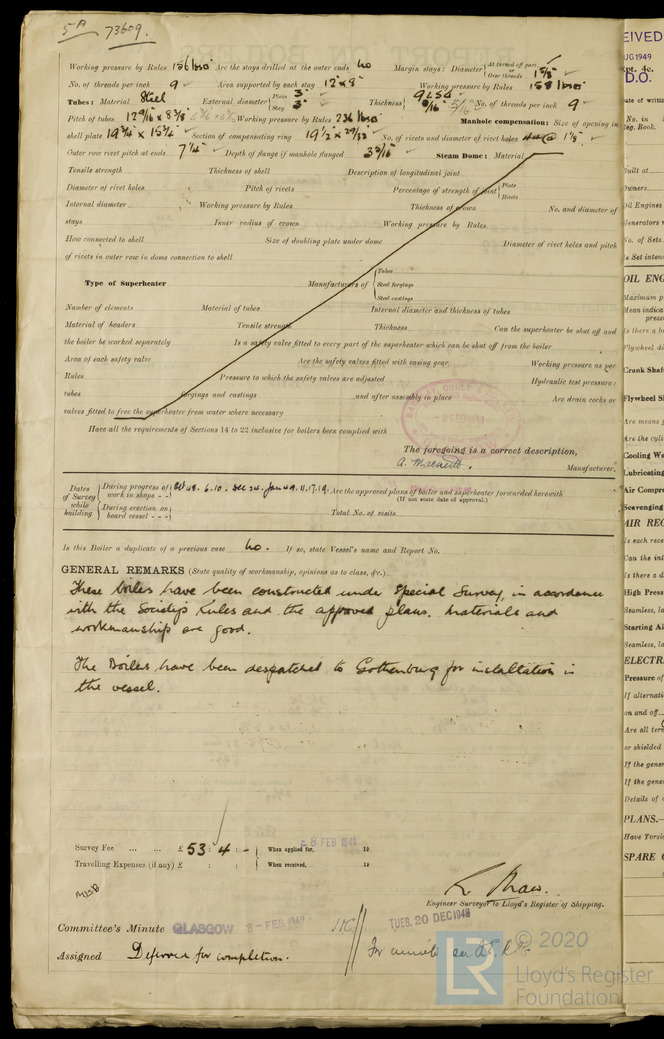 5A 73609.
Working pressure by Rules 156 lbs Are the stays drilled at the outer ends No Margin stays: Diameter { At turned off part, or Over threads 1 5/8"
No. of threads per inch 9 Area supported by each stay 12" x 8" Working pressure by Rules 158 lbs
Tubes: Material Steel External diameter { Plain 3" Stay 3" Thickness { 9 LSG 5/16" No. of threads per inch 9
Pitch of tubes Working pressure by Rules 236 lbs Manhole compensation: Size of opening in
shell plate 19 3/4" x 15 3/4" Section of compensating ring 19 1/2 x 29/32" No. of rivets and diameter of rivet holes 1 1/8"
Outer row rivet pitch at ends 7 1/4" Depth of flange if manhole flanged 3 3/16" Steam Dome: Material
Tensile strength Thickness of shell Description of longitudinal joint
Diameter of rivet holes Pitch of rivets Percentage of strength of joint { Plate Rivets
Internal diameter Working pressure by Rules Thickness of crown No. and diameter of
stays Inner radius of crown Working pressure by Rules
How connected to shell Size of doubling plate under dome Diameter of rivet holes and pitch
of rivets in outer row in dome connection to shell
Type of Superheater Manufacturers of { Tubes Steel forgings Steel castings
Number of elements Material of tubes Internal diameter and thickness of tubes
Material of headers Tensile strength Thickness Can the superheater be shut off and
the boiler be worked separately Is a safety valve fitted to every part of the superheater which can be shut off from the boiler
Area of each safety valve Are the safety valves fitted with easing gear Working pressure as per
Rules Pressure to which the safety valves are adjusted Hydraulic test pressure:
tubes forgings and castings and after assembly in place Are drain cocks or
valves fitted to free the superheater from water where necessary
Have all the requirements of Sections 14 to 22 inclusive for boilers been complied with
The foregoing is a correct description,
Manufacturer.
Dates of Survey while building { During progress of work in shops - - Oct 48. 6.10. Dec 24. Jan 49. 11.17.19. Are the approved plans of boiler and superheater forwarded herewith
(If not state date of approval.)
During erection on board vessel - - - Total No. of visits
Is this Boiler a duplicate of a previous case No. If so, state Vessel's name and Report No.
GENERAL REMARKS (State quality of workmanship, opinions as to class, &c.)
These boilers have been constructed under Special Survey, in accordance
with the Society's Rules and the approved plans. Materials and
workmanship are good.
The Boilers have been despatched to Gothenburg for installation in
the vessel.
Survey Fee ... ... £ 53 : 4 : - When applied for, 8 FEB 1949 19
Travelling Expenses (if any) £ : : When received, 19
Engineer Surveyor to Lloyd's Register of Shipping.
Committee's Minute GLASGOW 8 - FEB 1949 TUES. 20 DEC 1949
Assigned Deferred for completion.
© 2020
LR Lloyd's Register
Foundation